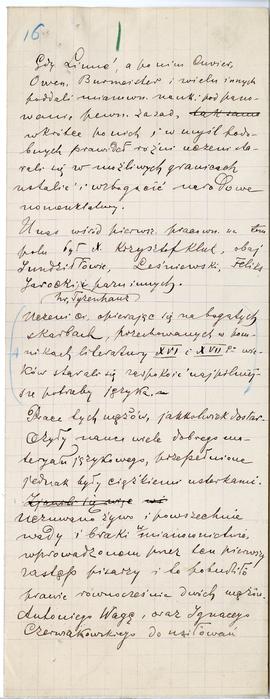 16
Gdy Linné, a po nim Cuvier,
Owen, Burmeister i wielu innych
poddali mianown. nauk. pod pano-
wanie, pewn. zasad, tak samo
wkrótce po nich, i w myśl podo-
bnych prawideł różni uczeni sta-
rali się w możliwych granicach
ustalić i wzbogacić narodowe
nomenklatury.
U nas wśród pierwsz. pracown. na tem
polu był X. Krzysztof Kluk, obaj
Jundziłłowie, Leśniewski, Feliks
Jarocki i paru innych.
hr. Tyzenhauz
Uczeni ci, opierając się na bogatych
skarbach, przechowanych w pom-
nikach literatury XVI i XVII wie-
ków starali się zaspokoić najpilniej-
sze potrzeby języka.
Prace tych mężów, jakkolwiek dostar-
czyły nauce wiele dobrego ma-
teryału językowego, przepełnione
jednak były ciężkiemi usterkami.
Zjawiła się więc
Uczuwano żywo i powszechnie
wady i braki w mianownictwie,
wprowadzonem przez ten pierwszy
zastęp pisarzy i to pobudziło
prawie równocześnie dwóch mężów:
Antoniego Wagę, oraz Ignacego
Czerwiakowskiego do usiłowań